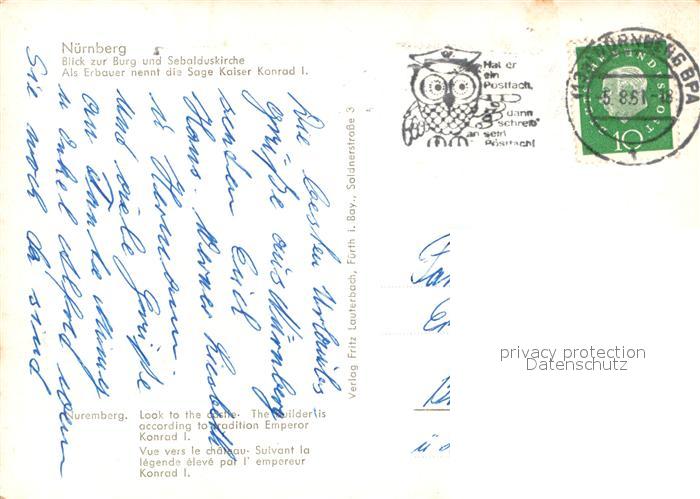 Nürnberg
Blick zur Burg und Sebalduskirche
Als Erbauer nennt die Sage Kaiser Konrad I.
Hat er
ein
Postfach,
dann
schreib'
an sein
Postfach!
NÜRNBERG BPA
10
Die besten Urlaubs
grüße aus Nürnberg
senden Euch
Hans. Werner
u Hermann.
Und viele Grüße
an Tante
u Onkel Alfred wenn
Sie noch da sind
Verlag Fritz Lauterbach, Fürth i. Bay., Soldnerstraße 3
privacy protection
Datenschutz
Nuremberg. Look to the castle. The builder is
according to tradition Emperor
Konrad I.
Vue vers le château. Suivant la
légende élevé par l' empereur
Konrad I.